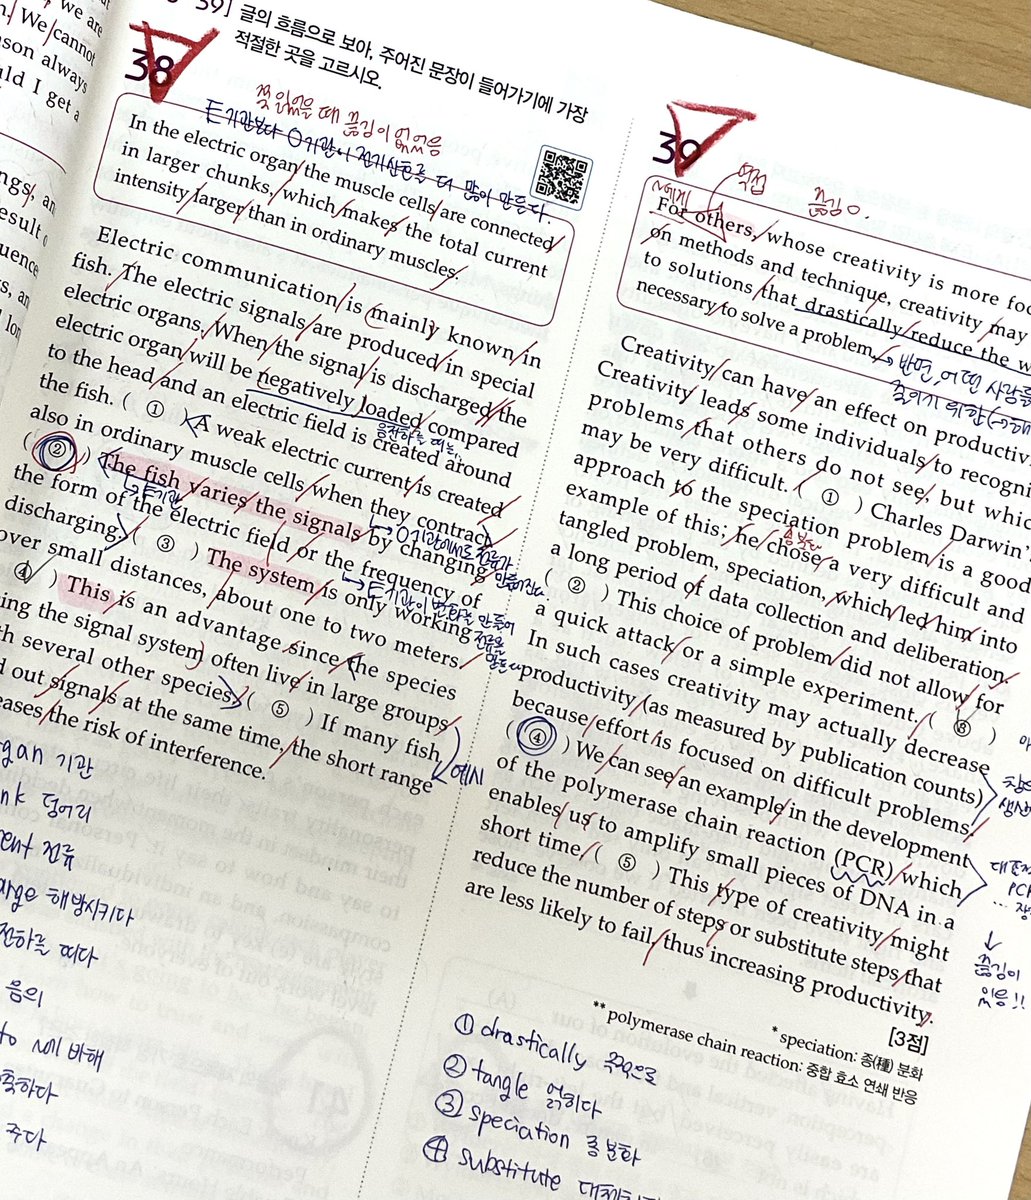 We cannot
always
uld I get a
ngs, an
result
uence
39] 글의 흐름으로 보아, 주어진 문장이 들어가기에 가장
적절한 곳을 고르시오.
38
끊김이 없었음
In the electric organ the muscle cells are connected
in larger chunks, which makes the total current
intensity larger than in ordinary muscles.
Electric communication is mainly known in
fish. The electric signals are produced in special
electric organs. When the signal is discharged the
electric organ will be negatively loaded compared
to the head and an electric field is created around
the fish. ( ① ) A weak electric current is created
also in ordinary muscle cells when they contract.
( ② ) The fish varies the signals by changing
the form of the electric field or the frequency of
discharging. ( ③ ) The system is only working
over small distances, about one to two meters.
( ④ ) This is an advantage since the species
ing the signal system often live in large groups
h several other species. ( ⑤ ) If many fish
d out signals at the same time, the short range
eases the risk of interference.
예시
gan 기관
nk 덩어리
ent 전류
arge 해방시키다
전하를 띠다
음의
주다
39
역접
~에게
끊김 O.
For others, whose creativity is more foc
on methods and technique, creativity may
to solutions that drastically reduce the w
necessary to solve a problem.
→ 반면, 어떤 사람들
줄이기 위한
Creativity can have an effect on productivi
Creativity leads some individuals to recogni
problems that others do not see, but which
may be very difficult. ( ① ) Charles Darwin'
approach to the speciation problem is a good
example of this; he chose a very difficult and
종 분화
tangled problem, speciation, which led him into
a long period of data collection and deliberation.
( ② ) This choice of problem did not allow for
a quick attack or a simple experiment. ( ③ )
In such cases creativity may actually decrease
productivity (as measured by publication counts)
because effort is focused on difficult problems.
( ④ ) We can see an example in the development
of the polymerase chain reaction (PCR) which
enables us to amplify small pieces of DNA in a
short time. ( ⑤ ) This type of creativity might
reduce the number of steps or substitute steps that
are less likely to fail, thus increasing productivity.
[3점]
* speciation: 종(種) 분화
** polymerase chain reaction: 중합 효소 연쇄 반응
PCR
↓
끊김이
있음!!
① drastically 극적으로
② tangle 얽히다
③ speciation 종분화
④ substitute